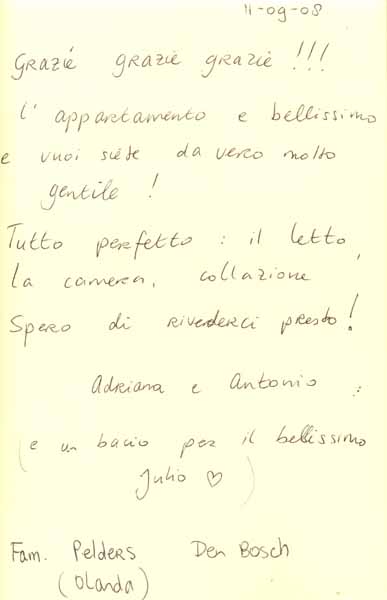 11-09-08
Grazie grazie grazie !!!
l'appartamento e bellissimo
e vuoi siete da vero molto
gentile !
Tutto perfetto : il letto,
la camera, collazione
Spero di rivederci presto!
Adriana e Antonio :
(e un bacio per il bellissimo
Julio ♡)
Fam. Pelders Den Bosch
(Olanda)